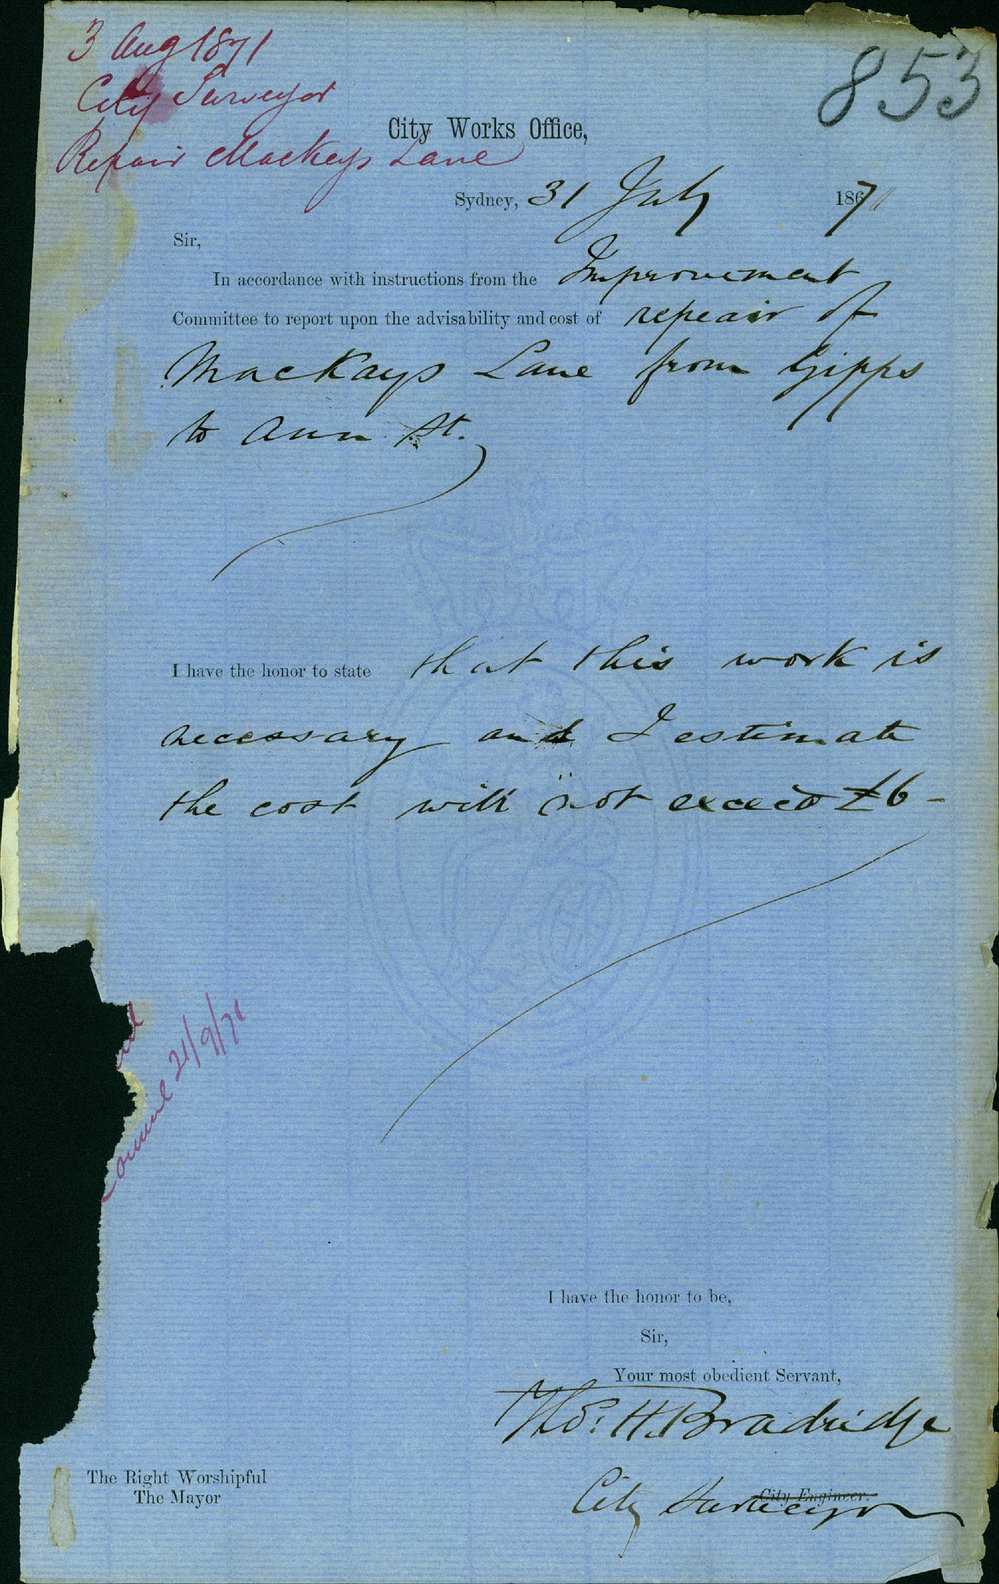 3 Aug 1871
City Surveyor
Repair Mackeys Lane
853
City Works Office,
Sydney, 31 July 1871
Sir,
In accordance with instructions from the Improvement
Committee to report upon the advisability and cost of repair of
MacKays Lane from Gipps
to Ann St.
I have the honor to state that this work is
necessary and I estimate
the cost will not exceed £6-
ouncil 21/9/71
I have the honor to be,
Sir,
Your most obedient Servant,
Thos. H. Bradridge
City Engineer.
City Surveyor
The Right Worshipful
The Mayor